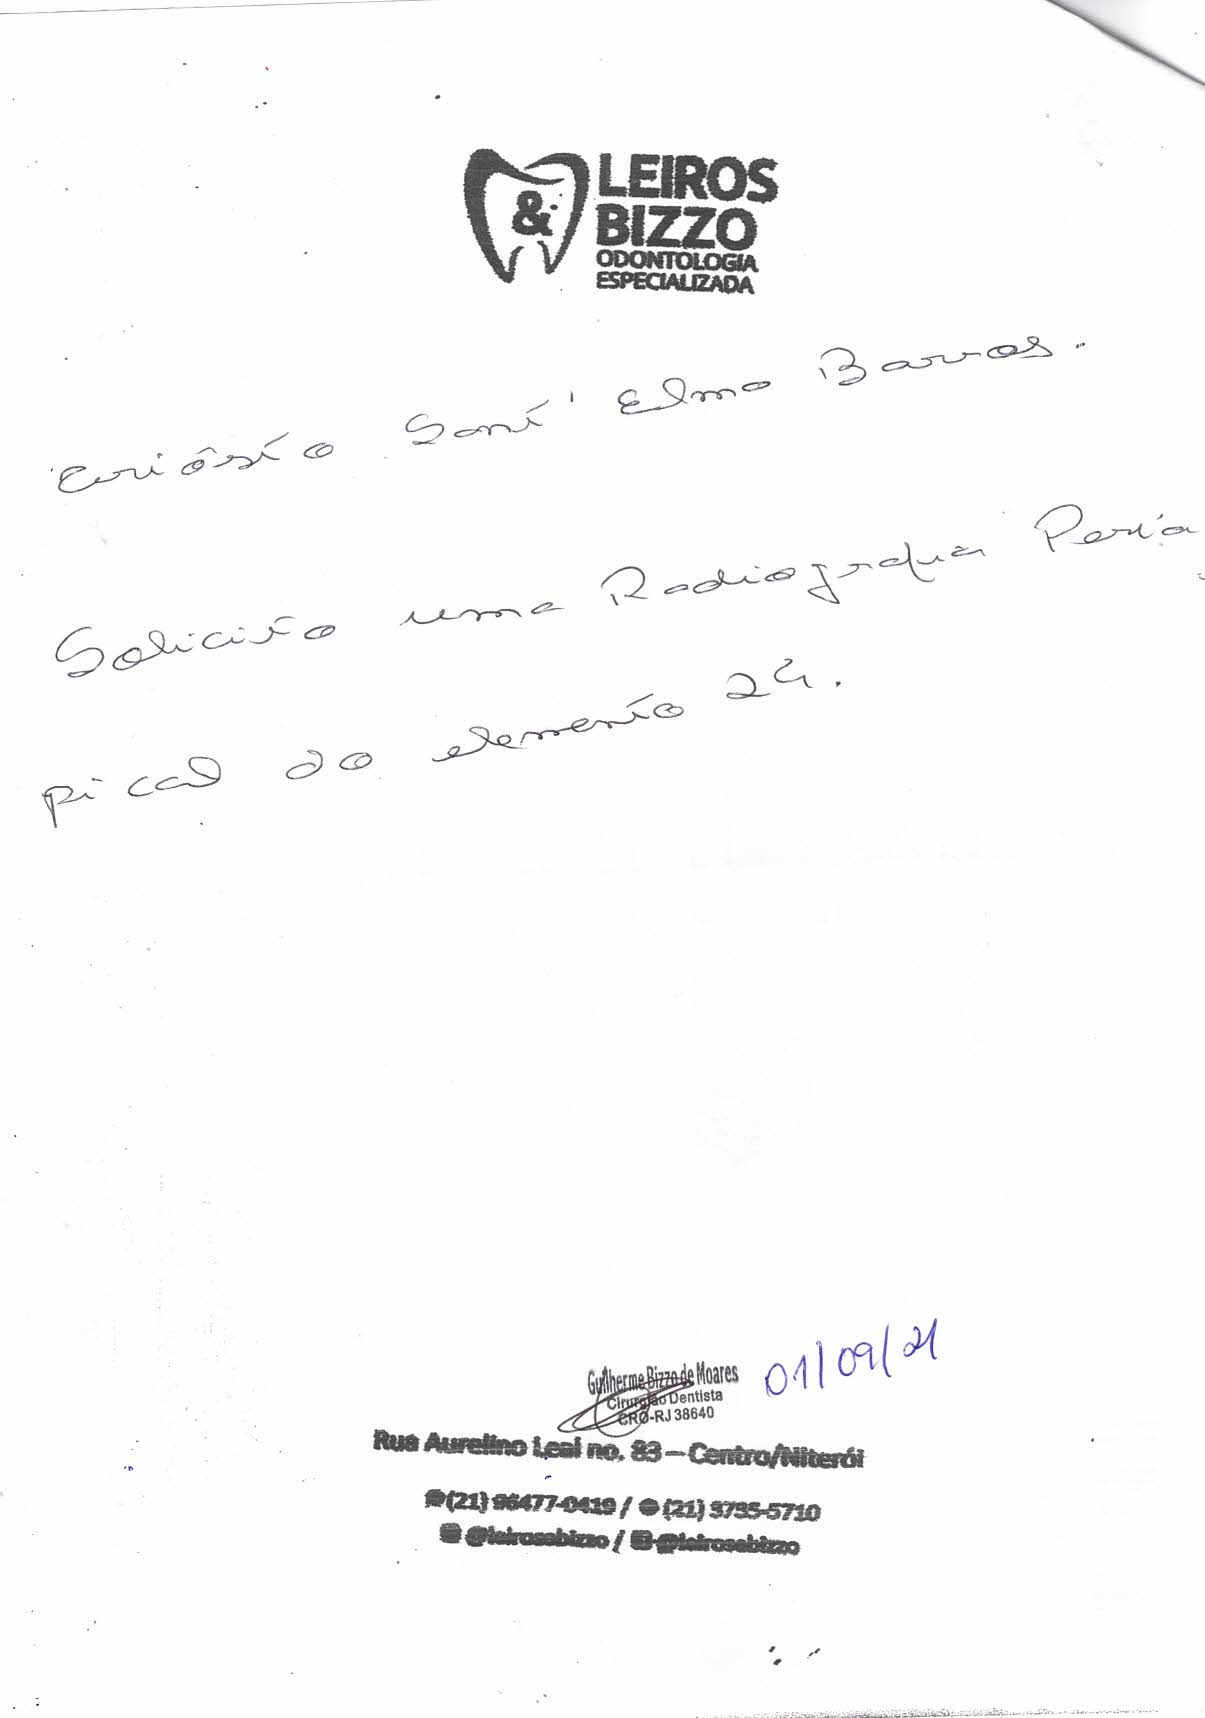 &
LEIROS
BIZZO
ODONTOLOGIA
ESPECIALIZADA
Sant' Elmo Barros.
Solicito uma Radiografia Peria
pical do elemento 24.
01/09/21
Guilherme Bizzo de Moares
Cirurgião Dentista
CRO-RJ 38640
Rua Aurelino Leal no. 83 – Centro/Niterói
(21) 96477-0419 / (21) 3735-5710
@leirosebizzo / @leirosebizzo